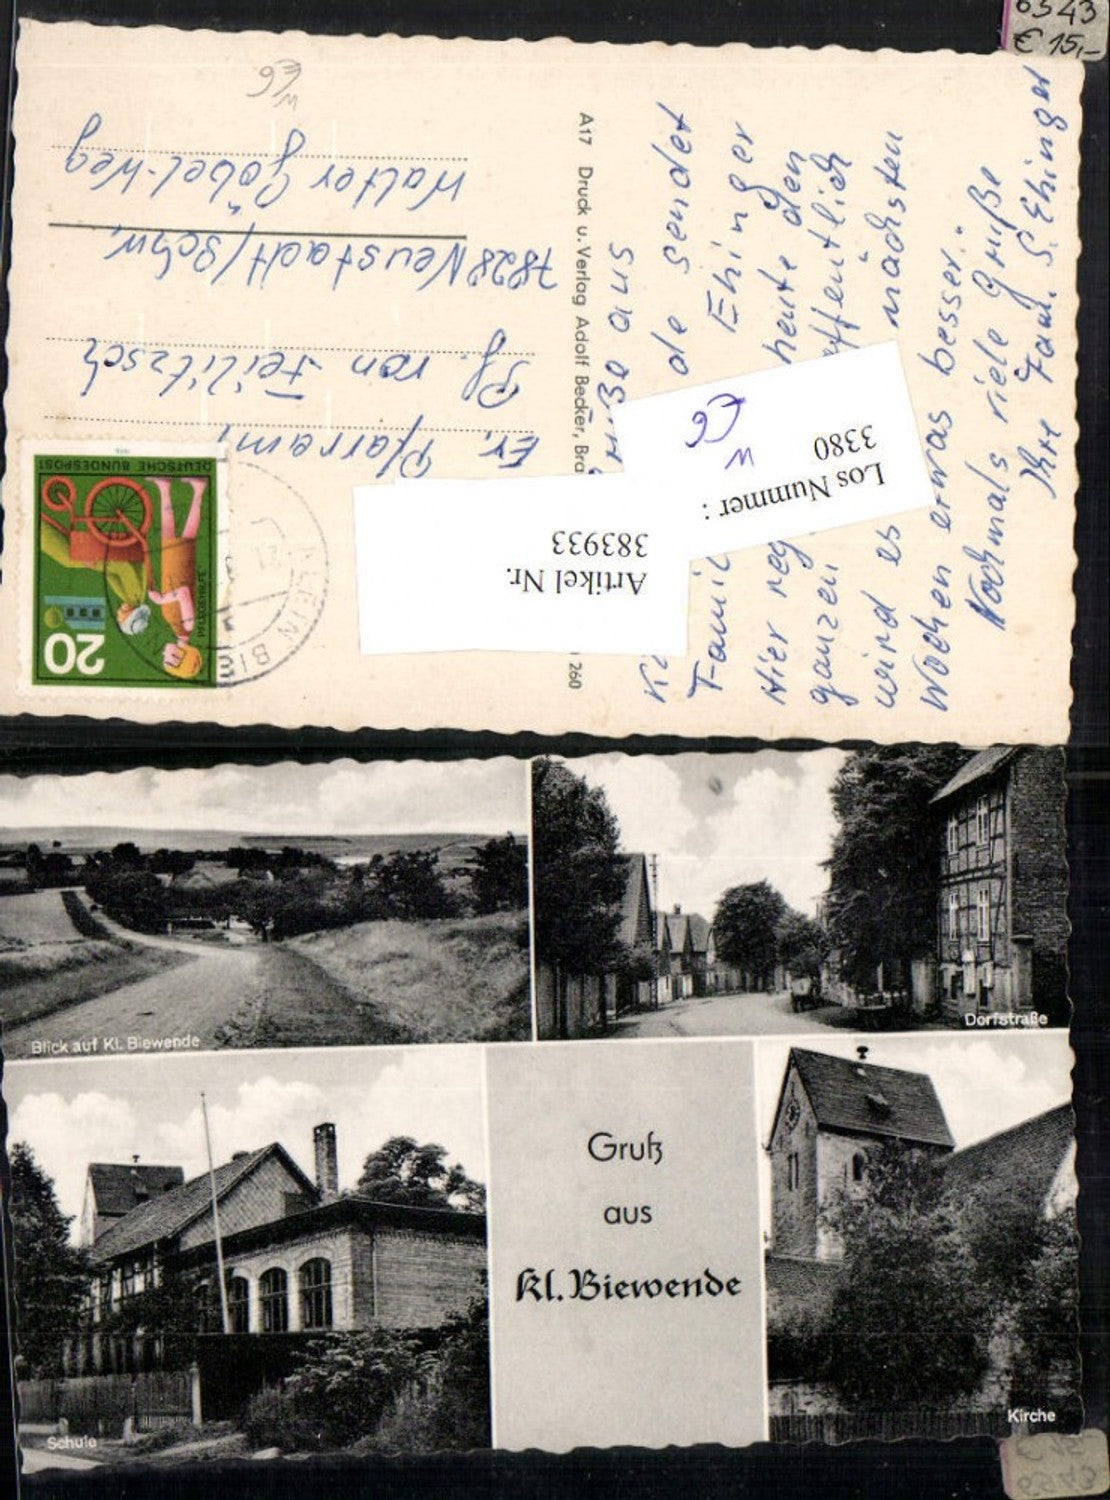 6543
€ 15,-
W
E6
Ev. Pfarramt
Pf. von Feilitzsch
7828 Neustadt/Schw.
Walter Göbel-Weg
A17 Druck u. Verlag Adolf Becker, Bra
260
DEUTSCHE BUNDESPOST
PFLEGEHILFE
20
KLEIN BI
aus
de sendet
Famil Ehinger
Hier reg heute den
ganzen ffentlich
wird es nächsten
Wochen etwas besser."
Nochmals viele Grüße
Ihre Fam. S. Ehinger
Los Nummer :
3380
W
E6
Artikel Nr.
383933
Blick auf Kl. Biewende
Dorfstraße
Gruß
aus
Kl. Biewende
Schule
Kirche